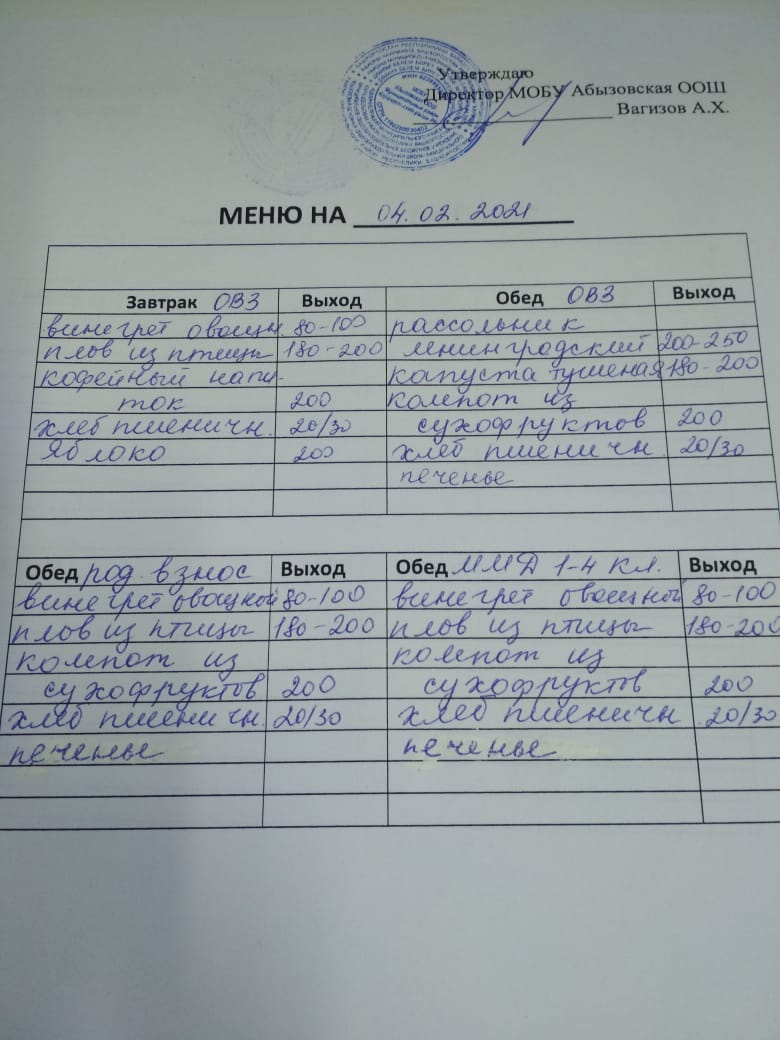 Утверждаю
Директор МОБУ Абызовская ООШ
Вагизов А.Х.
МЕНЮ НА 04.02.2021
Завтрак ОВЗ Выход Обед ОВЗ Выход
винегрет овощн. 80-100 рассольник
плов из птицы 180-200 ленинградский 200-250
кофейный напи- капуста тушеная 180-200
ток 200 компот из
хлеб пшеничн. 20/30 сухофруктов 200
Яблоко 200 хлеб пшеничн 20/30
печенье
Обед род. взнос Выход Обед ММД 1-4 кл. Выход
винегрет овощной 80-100 винегрет овощной 80-100
плов из птицы 180-200 плов из птицы 180-200
компот из компот из
сухофруктов 200 сухофруктов 200
хлеб пшеничн. 20/30 хлеб пшеничн 20/30
печенье печенье